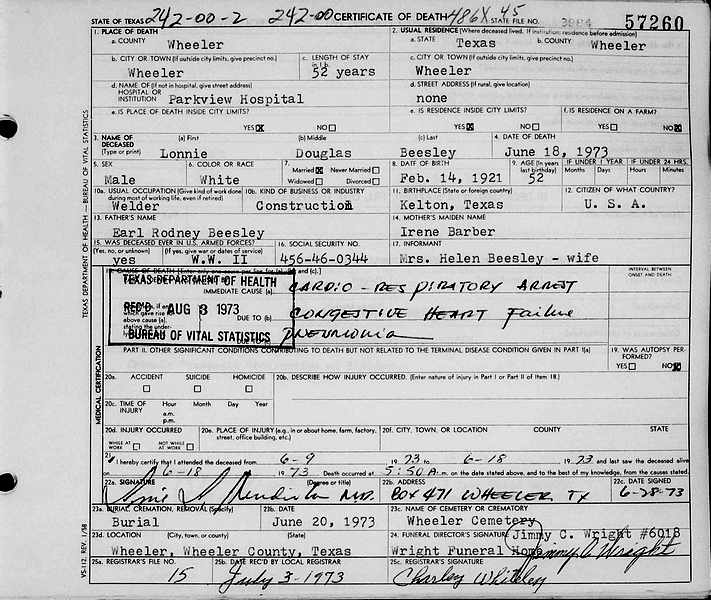 STATE OF TEXAS 242-00-2 242-00 CERTIFICATE OF DEATH 486X 45 STATE FILE NO. 57260
1. PLACE OF DEATH 2. USUAL RESIDENCE (Where deceased lived. If institution: residence before admission)
a. COUNTY Wheeler a. STATE Texas b. COUNTY Wheeler
b. CITY OR TOWN (If outside city limits, give precinct no.) c. LENGTH OF STAY in 1 b. c. CITY OR TOWN (If outside city limits, give precinct no.)
Wheeler 52 years Wheeler
d. NAME OF (If not in hospital, give street address) HOSPITAL OR INSTITUTION Parkview Hospital d. STREET ADDRESS (If rural, give location) none
e. IS PLACE OF DEATH INSIDE CITY LIMITS? e. IS RESIDENCE INSIDE CITY LIMITS? f. IS RESIDENCE ON A FARM?
YES NO YES NO YES NO
3. NAME OF DECEASED (Type or print) (a) First (b) Middle (c) Last 4. DATE OF DEATH
Lonnie Douglas Beesley June 18, 1973
5. SEX 6. COLOR OR RACE 7. Married Never Married Widowed Divorced 8. DATE OF BIRTH 9. AGE (In years last birthday) IF UNDER 1 YEAR IF UNDER 24 HRS.
Months Days Hours Minutes
Male White Feb. 14, 1921 52
10a. USUAL OCCUPATION (Give kind of work done during most of working life, even if retired) 10b. KIND OF BUSINESS OR INDUSTRY 11. BIRTHPLACE (State or foreign country) 12. CITIZEN OF WHAT COUNTRY?
Welder Construction Kelton, Texas U. S. A.
13. FATHER'S NAME 14. MOTHER'S MAIDEN NAME
Earl Rodney Beesley Irene Barber
15. WAS DECEASED EVER IN U.S. ARMED FORCES? 16. SOCIAL SECURITY NO. 17. INFORMANT
(Yes, no, or unknown) (If yes, give war or dates of service)
yes W.W. II 456-46-0344 Mrs. Helen Beesley - wife
18. CAUSE OF DEATH INTERVAL BETWEEN ONSET AND DEATH
TEXAS DEPARTMENT OF HEALTH
IMMEDIATE CAUSE (a) CARDIO-RESPIRATORY ARREST
REC'D AUG 3 1973 DUE TO (b) CONGESTIVE HEART Failure
BUREAU OF VITAL STATISTICS PNEUMONIA
PART II. OTHER SIGNIFICANT CONDITIONS CONTRIBUTING TO DEATH BUT NOT RELATED TO THE TERMINAL DISEASE CONDITION GIVEN IN PART I(a) 19. WAS AUTOPSY PERFORMED?
YES NO
20a. ACCIDENT SUICIDE HOMICIDE 20b. DESCRIBE HOW INJURY OCCURRED. (Enter nature of injury in Part I or Part II of Item 18.)
20c. TIME OF INJURY Hour Month Day Year
a.m.
p.m.
20d. INJURY OCCURRED 20e. PLACE OF INJURY (e.g., in or about home, farm, factory, street, office building, etc.) 20f. CITY, TOWN, OR LOCATION COUNTY STATE
WHILE AT WORK NOT WHILE AT WORK
21. I hereby certify that I attended the deceased from 6-9 1973 to 6-18 1973 and last saw the deceased alive
on 6-18 1973 Death occurred at 5:50 A.m. on the date stated above, and to the best of my knowledge, from the causes stated.
22a. SIGNATURE (Degree or title) 22b. ADDRESS 22c. DATE SIGNED
M.D. BOX 471 WHEELER, TX 6-28-73
23a. BURIAL, CREMATION, REMOVAL (Specify) 23b. DATE 23c. NAME OF CEMETERY OR CREMATORY
Burial June 20, 1973 Wheeler Cemetery
23d. LOCATION (City, town, or county) (State) 24. FUNERAL DIRECTOR'S SIGNATURE Jimmy C. Wright #6018
Wheeler, Wheeler County, Texas Wright Funeral Home Jimmy C. Wright
25a. REGISTRAR'S FILE NO. 25b. DATE REC'D BY LOCAL REGISTRAR 25c. REGISTRAR'S SIGNATURE
15 July 3-1973 Charley Whiteley
TEXAS DEPARTMENT OF HEALTH—BUREAU OF VITAL STATISTICS
MEDICAL CERTIFICATION
VS-112, REV. 1/58